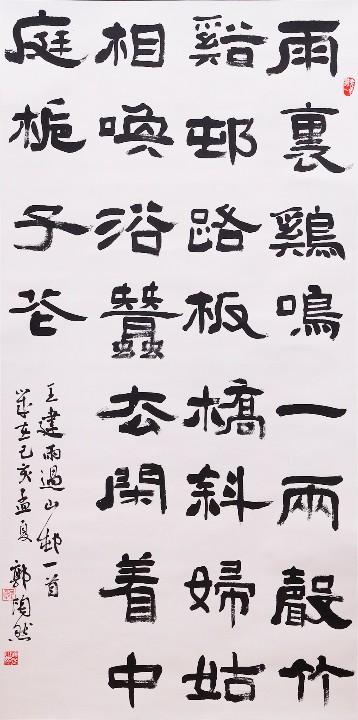 雨裏鷄鳴一兩聲竹
谿邨路板橋斜婦姑
相喚浴蠶去閑着中
庭栀子花
王建雨過山邨一首
歲在己亥孟夏 郭陶然